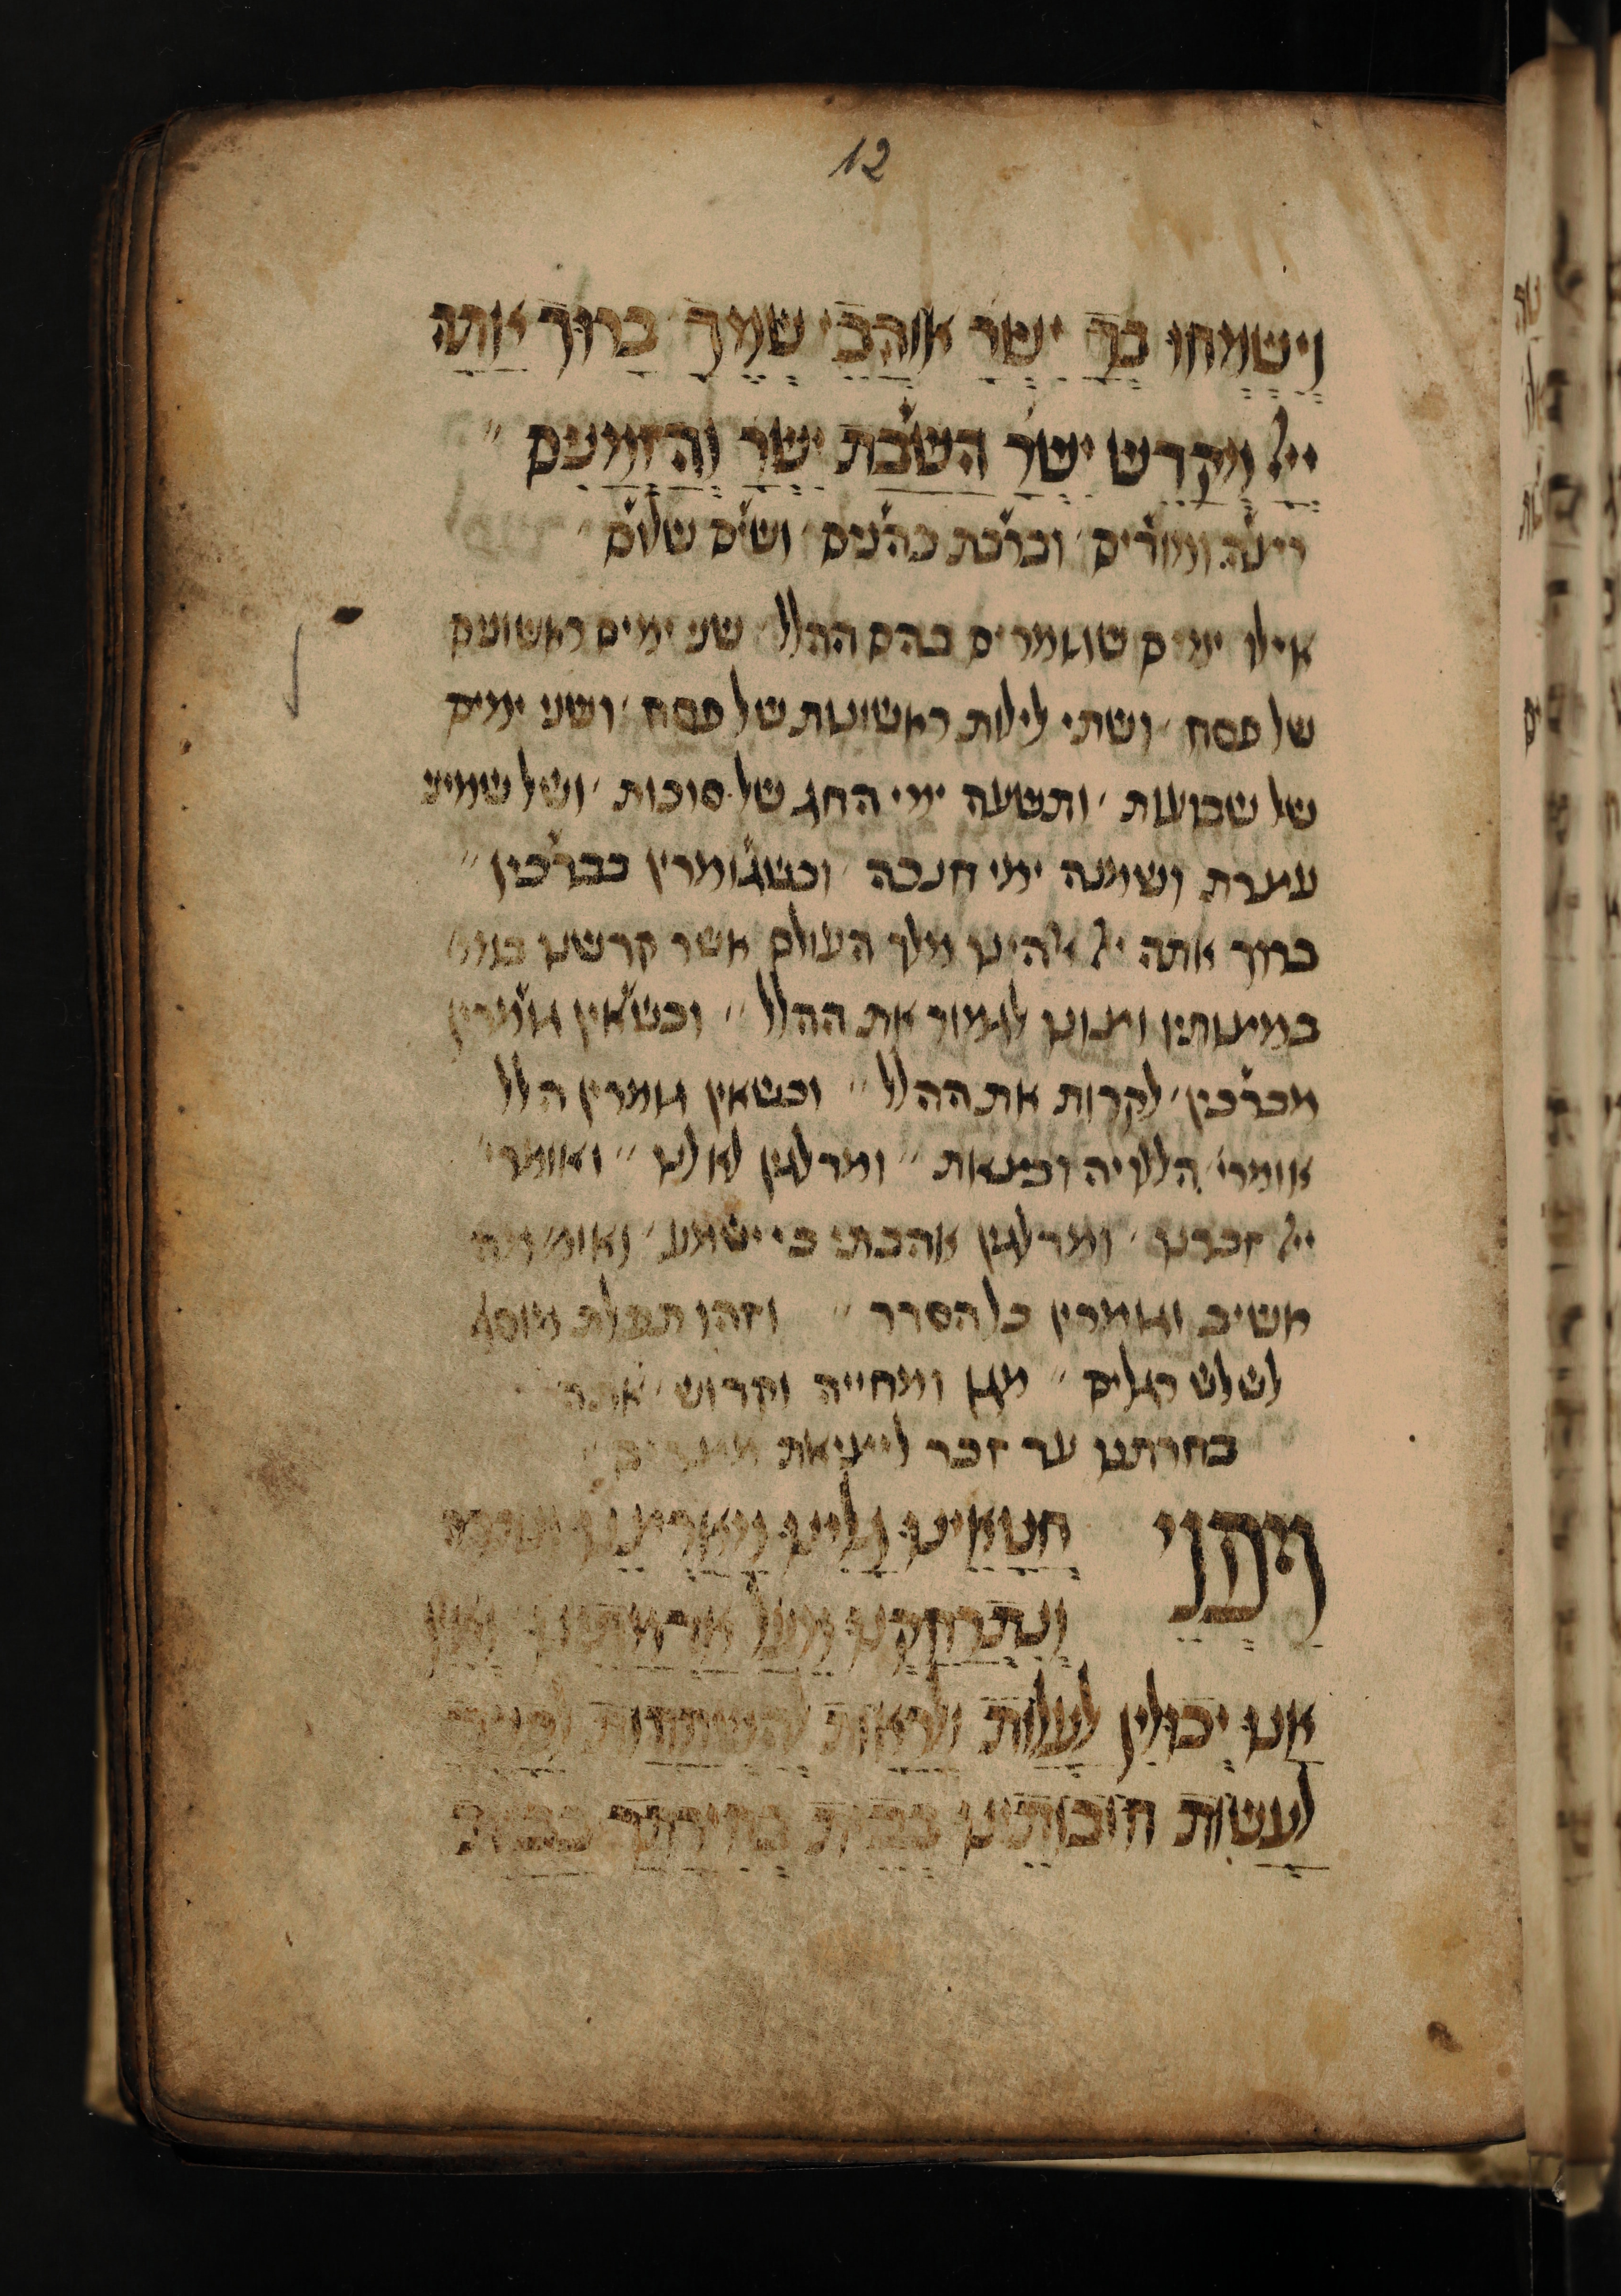 12
וישמחו בך ישר אוהבי שמך ברוך אתה
ייל מקדש ישר השבת ישר והזמנים
רצה ומודים וברכת כהנים ושים שלום
אילו ימים שגומרים בהם ההלל שני ימים ראשונים
של פסח ושתי לילות ראשונות של פסח ושני ימים
של שבועות ותשעה ימי החג של סוכות ושל שמיני
עצרת ושמנה ימי חנכה וכשגומרין מברכין
ברוך אתה ייל אלהינו מלך העולם אשר קדשנו במצו
במצותיו וצונו לגמור את ההלל וכשאין גומרין
מברכין לקרות את ההלל וכשאין גומרין הלל
אומרי הללויה ובצאת ומדלגין לא לנו ואומרי
ייל זכרנו ומדלגין אהבתי כי ישמע ואומ מה
אשיב וגומרין כל הסדר וזהו תפלת מוסף
לשלש רגלים מגן ומחייה וקדוש אתה
בחרתנו עד זכר לייציאת מצרים
ומפני חטאינו גלינו מארצנו
ונתרחקנו מעל אדמתנו ואין
אנו יכולין לעלות ולראות להשתחות לפניך
לעשות חובותינו בבית בחירתך בבית